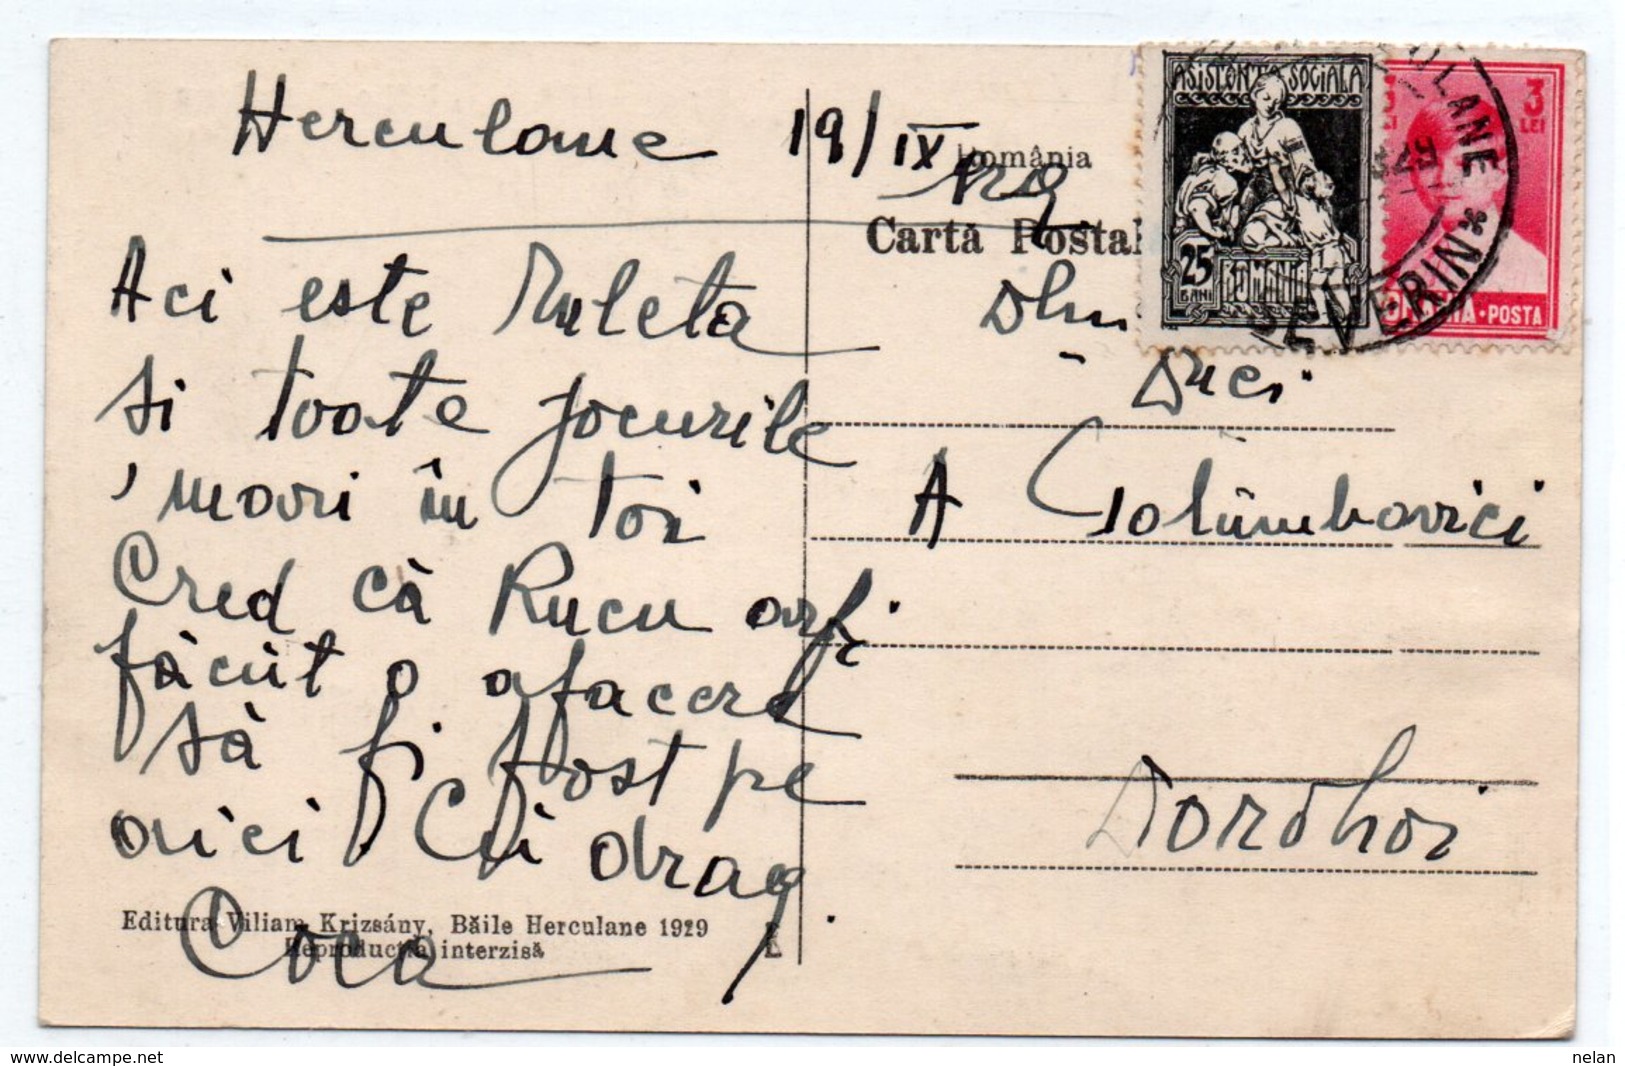 Herculane 19/IX 929
România
Carta Postal
Aci este Ruleta
si toate jocurile
mari în toi
Cred că Rucu ar fi
făcut o afacere
să fi fost pe
aici Cu drag
Coca
Editura Viliam Krizsány, Băile Herculane 1929
Reproducția interzisă
ASISTENTA SOCIALA
25
BANI
ROMANIA
3
LEI
ROMANIA · POSTA
SEVERIN
A Golimbovici
Dorohoi
www.delcampe.net
nelan